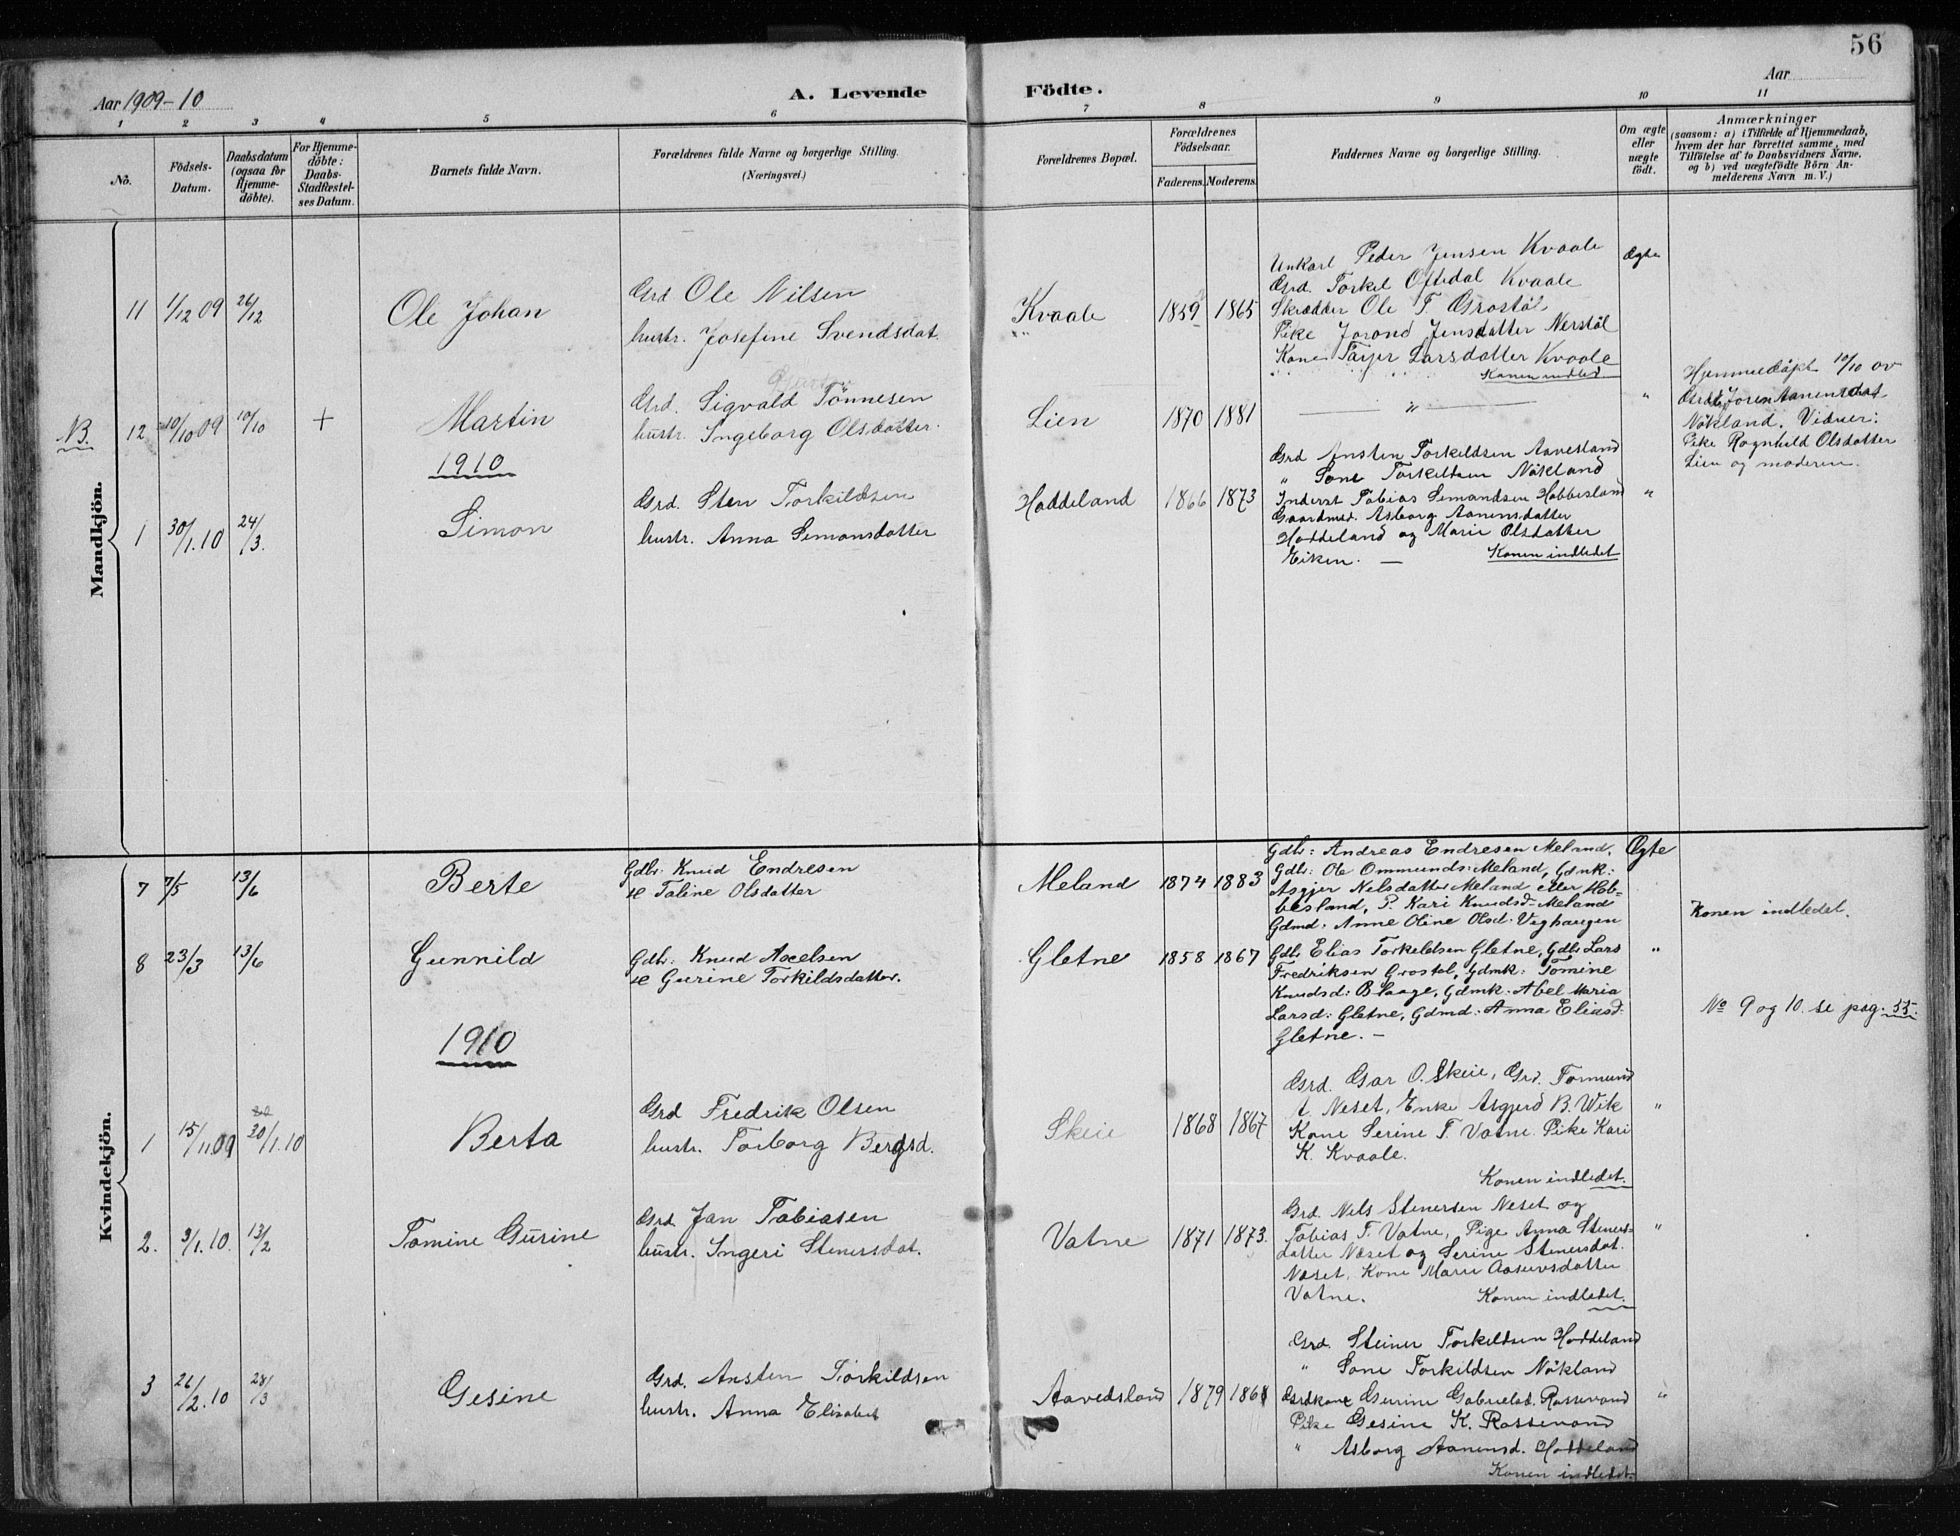 56
Aar 1909-10
A. Levende
Födte.
Aar
1 2 3 4 5 6 7 8 9 10 11
No.
Födsels-
Datum.
Daabsdatum
(ogsaa for
Hjemme-
döbte).
For Hjemme-
döbte:
Daabs-
Stadfæstel-
ses Datum.
Barnets fulde Navn.
Forældrenes fulde Navne og borgerlige Stilling.
(Næringsvei.)
Forældrenes Bopæl.
Forældrenes
Födselsaar.
Faderens. Moderens.
Faddernes Navne og borgerlige Stilling.
Om ægte
eller
uægte
födt.
Anmærkninger
(saasom: a) i Tilfælde af Hjemmedaab,
hvem der har forrettet samme, med
Tilföielse af to Daabsvidners Navne,
og b) ved uægtefödte Börn An-
melderens Navn m. V.)
Mandkjön.
11 1/12 09 26/12
Ole Johan
Grd Ole Nilsen
hustr. Josefine Svendsdat.
Kvaale
"
1859 1865
Unkarl Peder Jensen Kvaale
Grd. Torkel Oftedal Kvaale
Skrædder Ole T. Grostöl
Pike Jorond Jensdatter Nerstöl
Kone Tarjer Larsdatter Kvaale
Konen indled.
Ægte
NB. 12 10/10 09 10/10 +
Martin
Grd. Sigvald Tönnesen
hustr. Ingeborg Olsdatter.
Lien
1870 1881
"
"
Hjemmedöpt 10/10 av
Joren Aanensdat
Nökland. Vidner:
Pike Ragnhild Olsdatter
Lien og moderen.
1910
1 30/1.10 24/3.
Simon
Grd. Sten Torkildsen
hustr. Anna Simonsdatter
Hoddeland
1866 1873
Grd Ansten Torkildsen Aavesland
" Sone Torkildsen Nökland
Inderst Tobias Simandsen Hobbesland
Gaardmd. Asborg Aanensdatter
Hoddeland og Marie Olsdatter
Eiken. — Konen indledet
"
Kvindekjön.
7 7/5 13/6
Berte
Gdbr. Knud Endresen
& Taline Olsdatter
Meland
1874 1883
Gdbr: Andreas Endresen Meland,
Gdbr: Ole Ommunds: Meland, Gdmk:
Asgjer Nelsdatter Meland eller Hob-
besland, P. Kari Knudsd- Meland
Gdmd: Anne Oline Olsd: Veghaugen
Ægte
Konen indledet.
8 23/3 13/6
Gunnild
Gdbr: Knud Axelsen
& Gurine Torkildsdatter.
Gletne
1858 1867
Gdbr Elias Torkeldsen Gletne, Gdbr Lars
Fredriksen Grostøl, Gdmk: Tomine
Knudsd: Blaage, Gdmk: Abel Maria
Larsd: Gletne, Gdmd: Anna Eliasd:
Gletne. —
"
No 9 og 10. se pag. 55.
1910
1 15/11.09 20/1.10
Berta
Grd Fredrik Olsen
hustr. Torborg Bergsd.
Skeie
1868 1867
Grd. Gar O. Skeie, Grd. Tormund
A. Neset, Enke Asgjerd B. Wik
Kone Serine T. Vatne. Pike Kari
K. Kvaale.
Konen indledet.
"
2. 3/1.10. 13/2
Tomine Gurine
Grd. Jan Tobiasen
hustr. Ingeri Stenersdat.
Vatne
1871 1873.
Grd. Nels Stenersen Neset og
Tobias T. Vatne, Pige Anna Steners-
datter Næset og Serine Stenersdat.
Næset, Kone Marie Aasuvsdatter
Vatne. Konen indledet.
"
3 26/2.10 28/3
Gesine
Grd. Ansten Torkildsen
hustr. Anna Elisabet
Aavedsland
1879 1868
Grd. Steiner Torkeldsen Hoddeland
" Sone Torkildsen Nökland
Grdkone Gurine Gabrielsd. Rossevand
Pike Gesine K. Rossevand
" Asborg Aanensd. Hoddeland
Konen indledet.
"